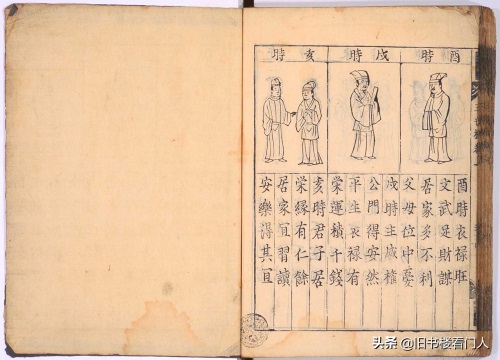 酉時
戌時
亥時
酉時衣祿旺
文武足財謀
居家多不利
父母位中憂
戌時主威權
公門得安然
平生衣祿有
榮運積千錢
亥時君子居
榮緣有仁餘
居家宜習讀
安樂得其宜
头条 @旧书楼看门人